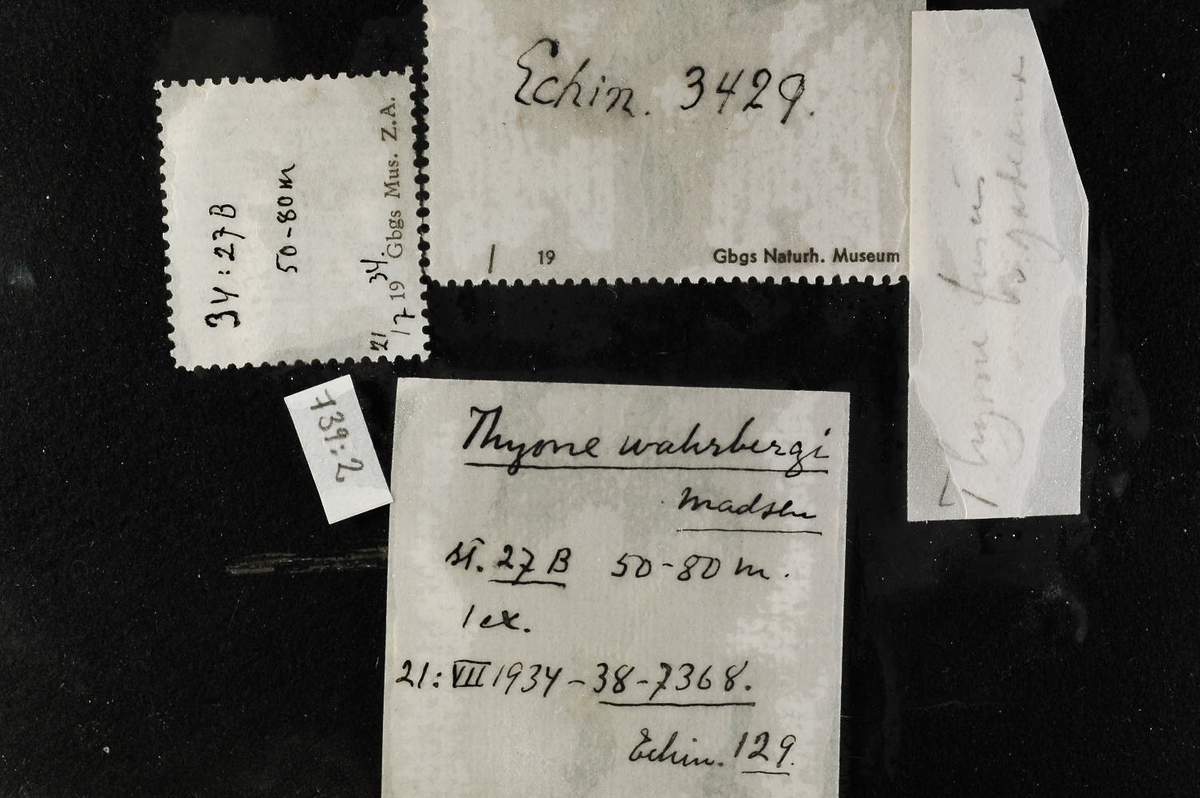 34:27B
50-80m
21/7 1934. Gbgs Mus. Z.A.
Echin. 3429.
/ 19 Gbgs Naturh. Museum
Thyone fusus
739:2
Thyone wahrbergi
Madsen
st. 27 B 50-80 m.
1 ex.
21:VII 1934-38-7368.
Echin. 129.